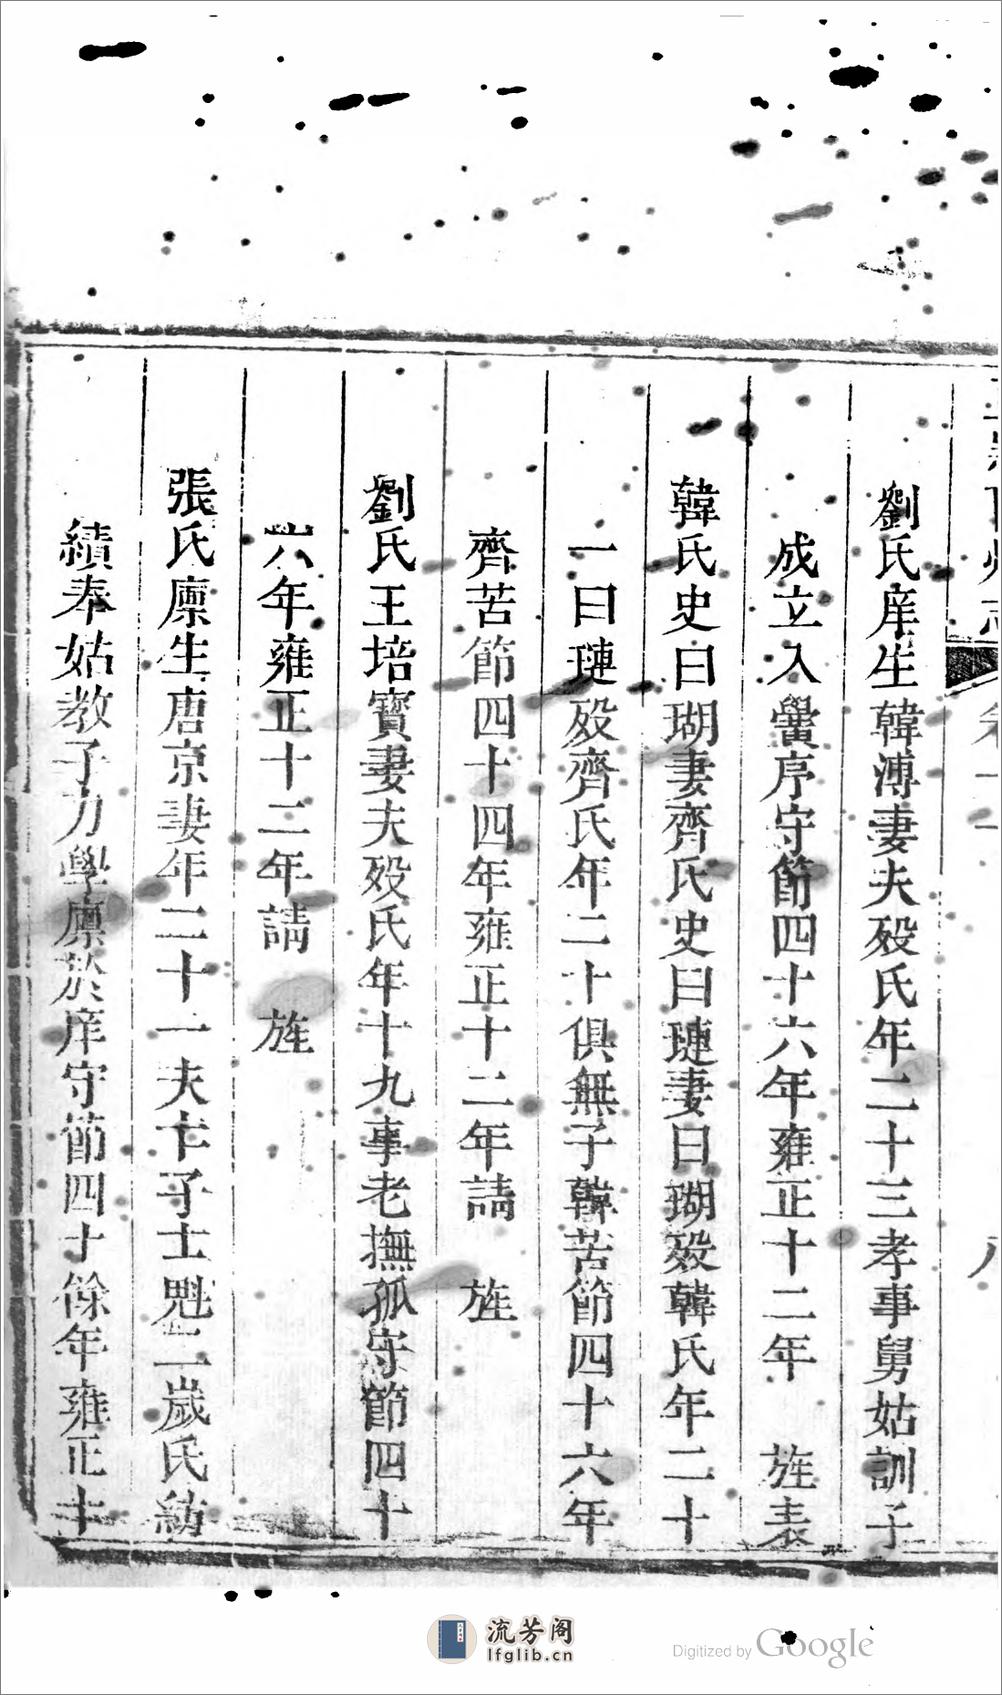 劉氏庠生韓溥妻夫殁氏年二十三孝事舅姑訓子
成立入黌序守節四十六年雍正十二年 旌表
韓氏史曰瑚妻齊氏史曰璉妻曰瑚殁韓氏年二十
一曰璉殁齊氏年二十俱無子韓苦節四十六年
齊苦節四十四年雍正十二年請 旌
劉氏王培寶妻夫殁氏年十九事老撫孤守節四十
六年雍正十二年請 旌
張氏廩生唐京妻年二十一夫亡子士魁二歲氏紡
績奉姑教子力學廩於庠守節四十餘年雍正十
流芳阁
lfglib.cn
Digitized by Google